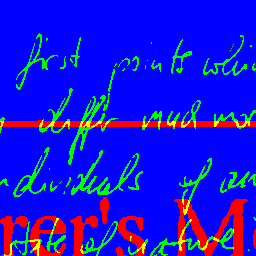 first points whi
differ much mo
ndividuals of an
rer's M
state of nature.